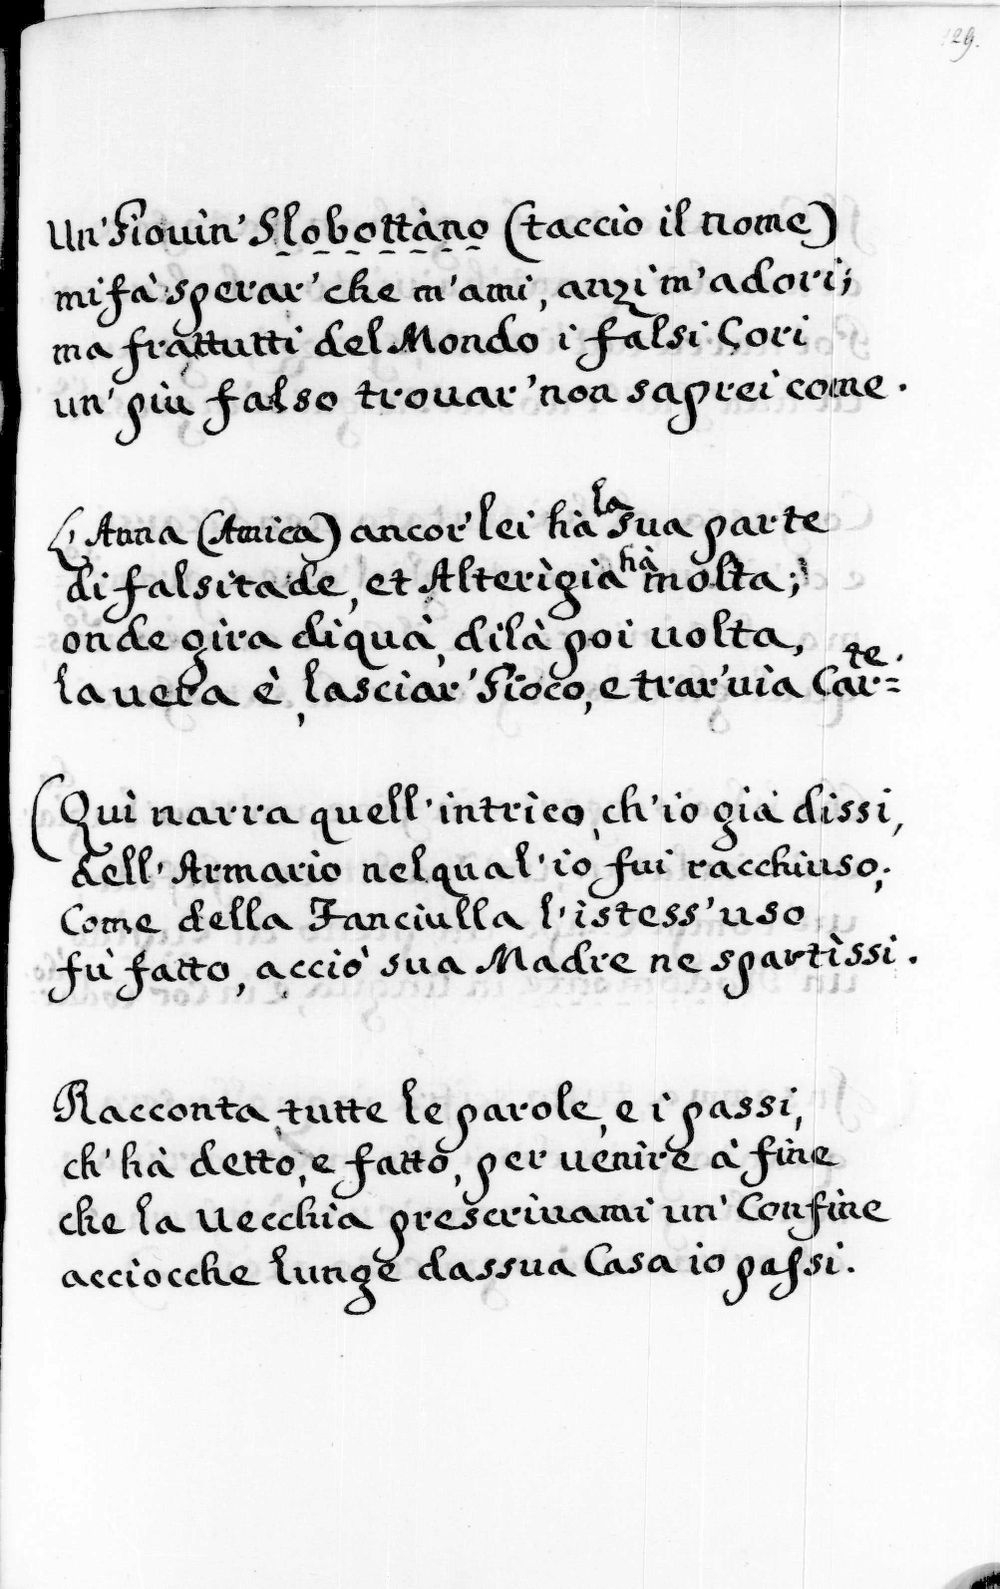 129.
Un' Giouìn' Slobottàno (tacciò il nome)
mi fà sperar' che m'ami, anzì m'adori;
ma frattutti del Mondo i falsi Cori
un' più falso trouar' non saprei come.
L'Anna (Amica) ancor' lei hà la sua parte
di falsitade, et Alterìgia hà molta;
onde gira dì quà, dì là poi uolta,
la uera è, lasciar' Gioco, e trar' uia Car=te.
(Quì narra quell' intrìco, ch'io già dissi,
dell' Armario nel qual' io fui racchiuso;
Come della Fanciulla l'istess' uso
fù fatto, acciò sua Madre ne spartìssi.
Racconta tutte le parole, e i passi,
ch' hà detto, e fatto, per uenire à fine
che la Vecchia prescriuami un' Confine
acciocche lunge dassua Casa io passi.